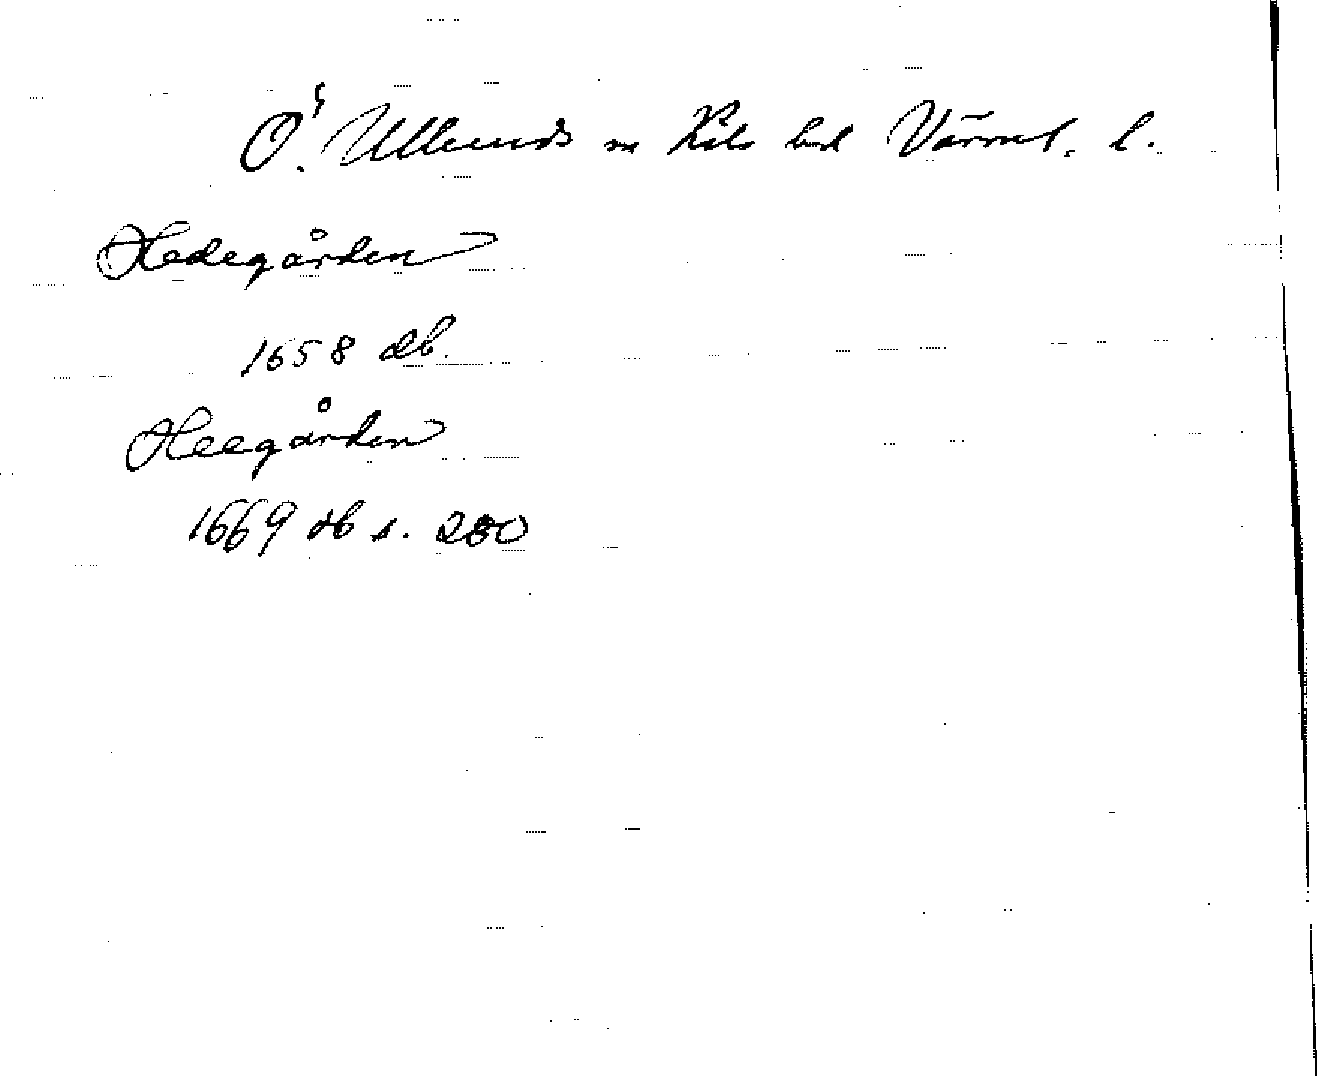 Ö. Ulleruds sn Kils hd Värml. l.
Hedegården
1658 db.
Heegården
1669 db s. 280